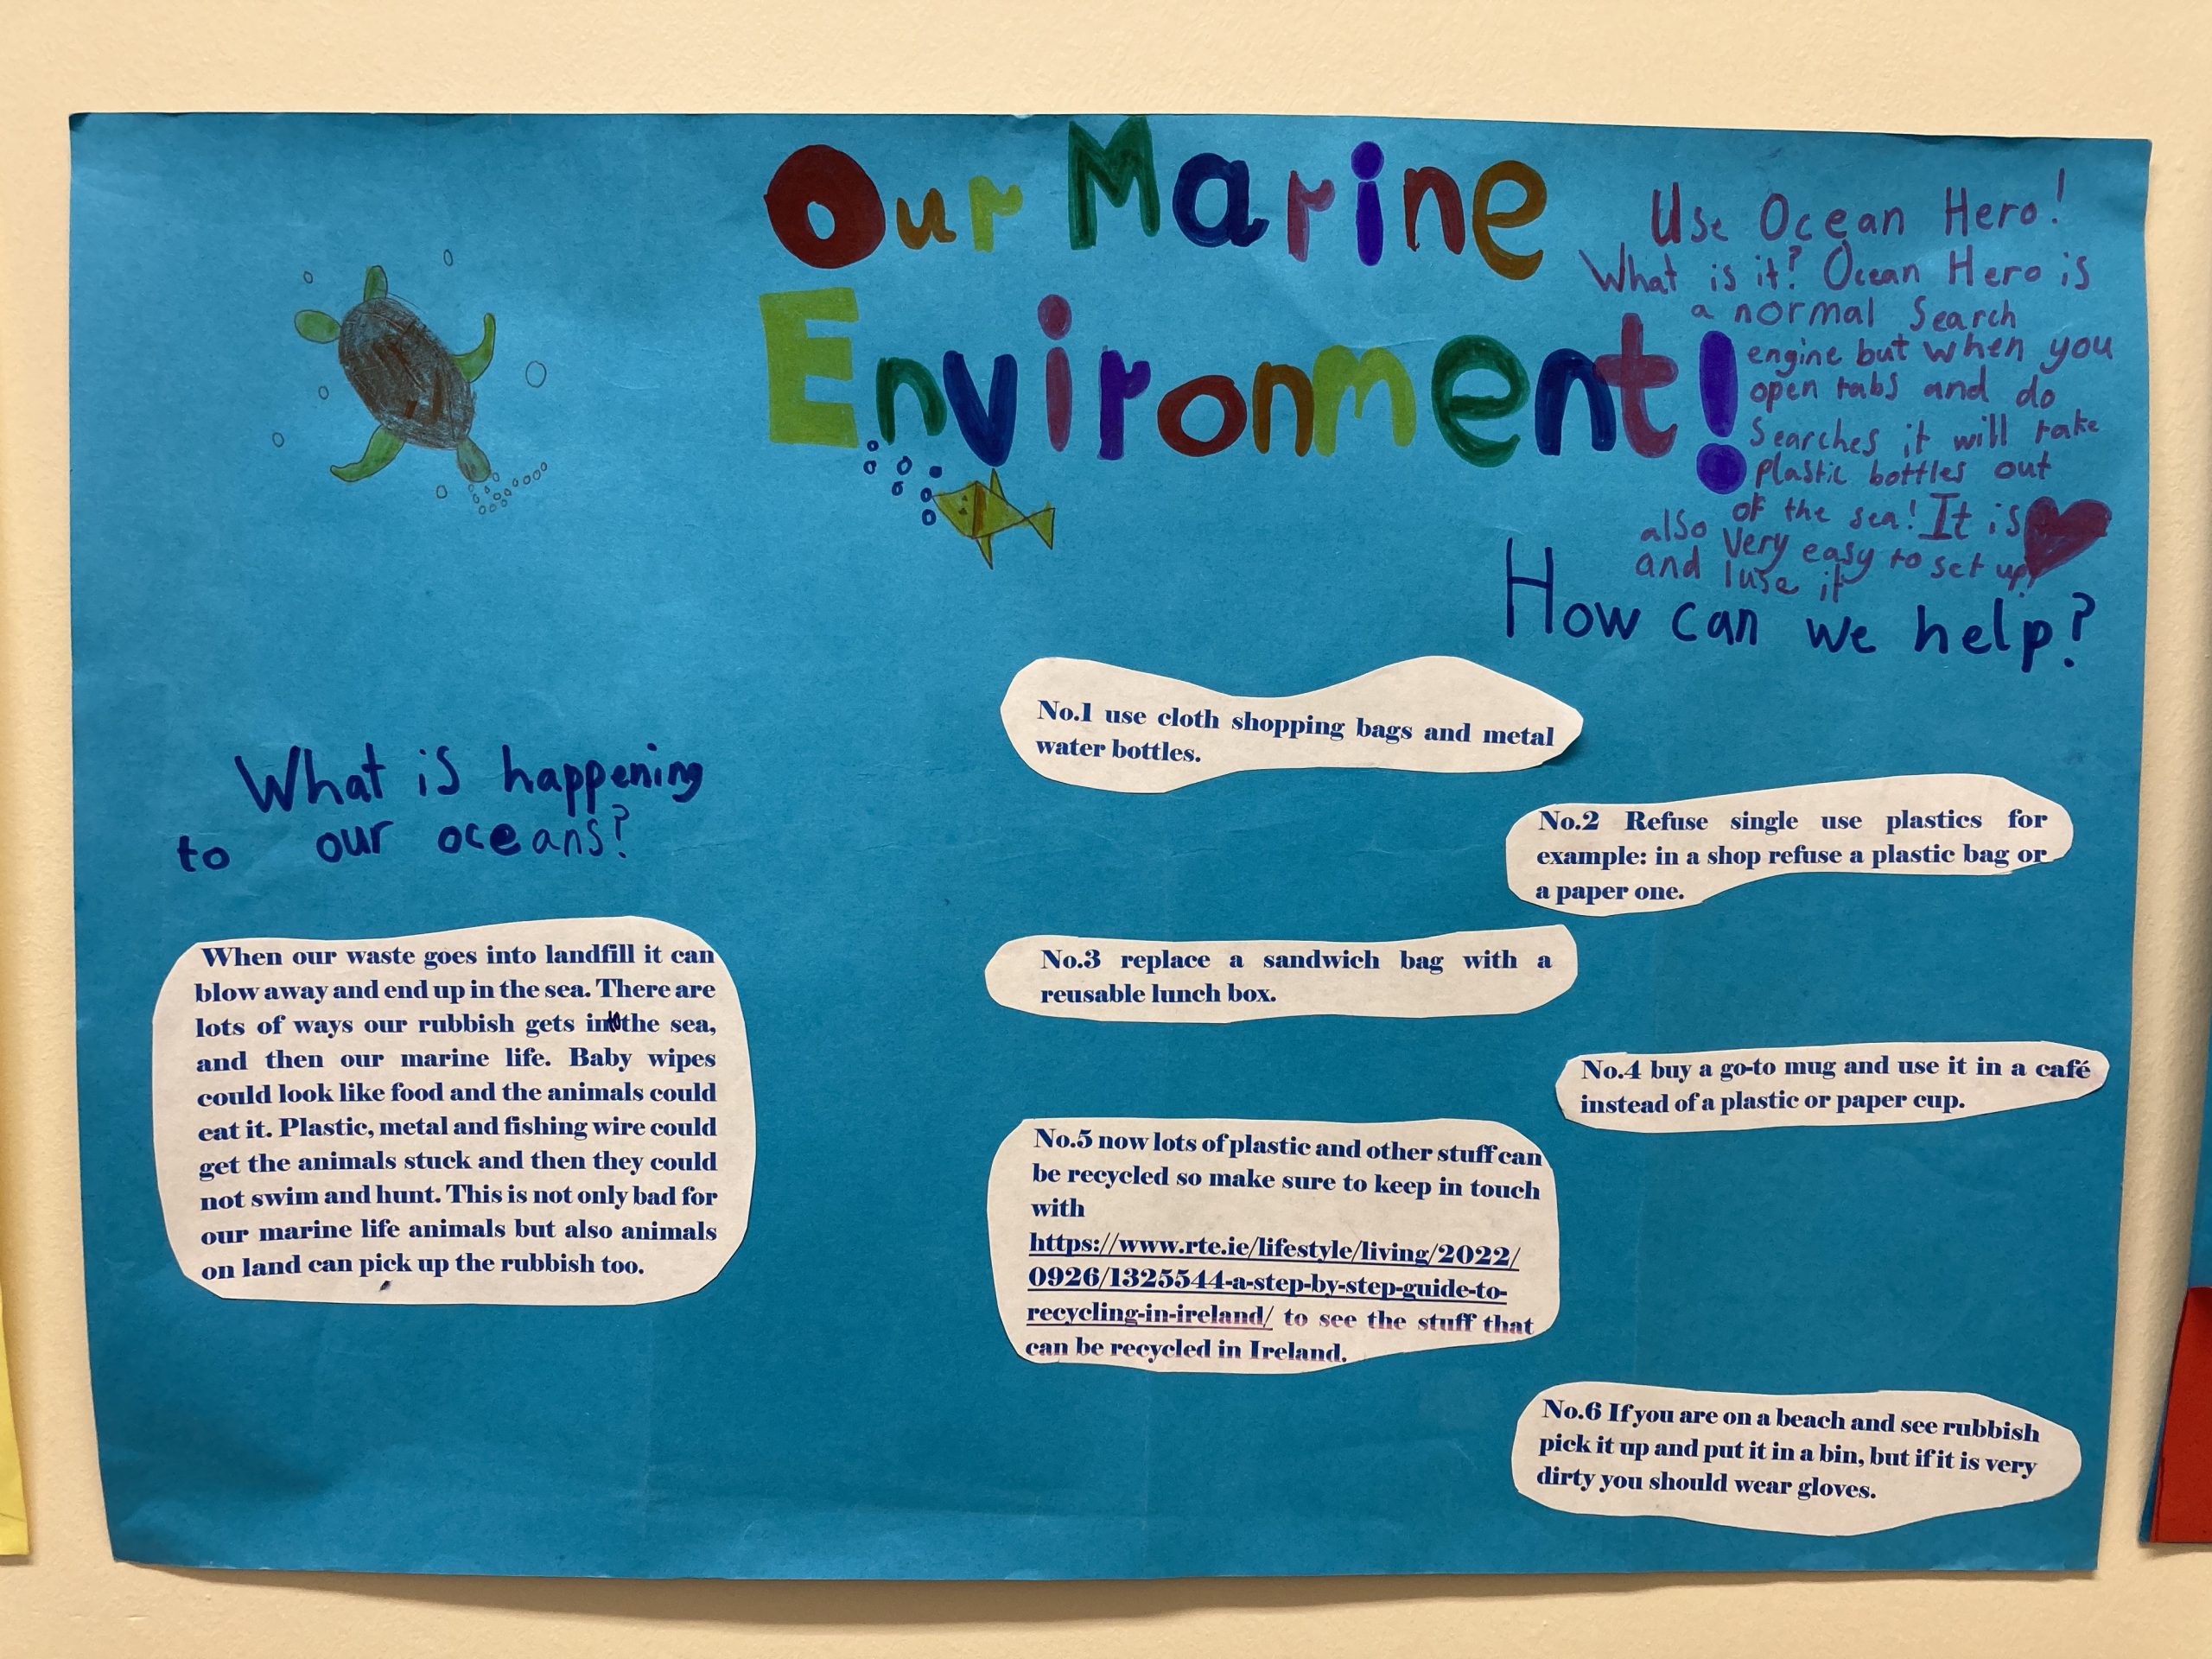 Our Marine
Environment!
Use Ocean Hero!
What is it? Ocean Hero is
a normal search
engine but when you
open tabs and do
searches it will take
plastic bottles out
of the sea! It is
also very easy to set up!
and I use it
What is happening
to our oceans?
When our waste goes into landfill it can
blow away and end up in the sea. There are
lots of ways our rubbish gets into the sea,
and then our marine life. Baby wipes
could look like food and the animals could
eat it. Plastic, metal and fishing wire could
get the animals stuck and then they could
not swim and hunt. This is not only bad for
our marine life animals but also animals
on land can pick up the rubbish too.
How can we help?
No.1 use cloth shopping bags and metal
water bottles.
No.2 Refuse single use plastics for
example: in a shop refuse a plastic bag or
a paper one.
No.3 replace a sandwich bag with a
reusable lunch box.
No.4 buy a go-to mug and use it in a café
instead of a plastic or paper cup.
No.5 now lots of plastic and other stuff can
be recycled so make sure to keep in touch
with
https://www.rte.ie/lifestyle/living/2022/
0926/1325544-a-step-by-step-guide-to-
recycling-in-ireland/ to see the stuff that
can be recycled in Ireland.
No.6 If you are on a beach and see rubbish
pick it up and put it in a bin, but if it is very
dirty you should wear gloves.